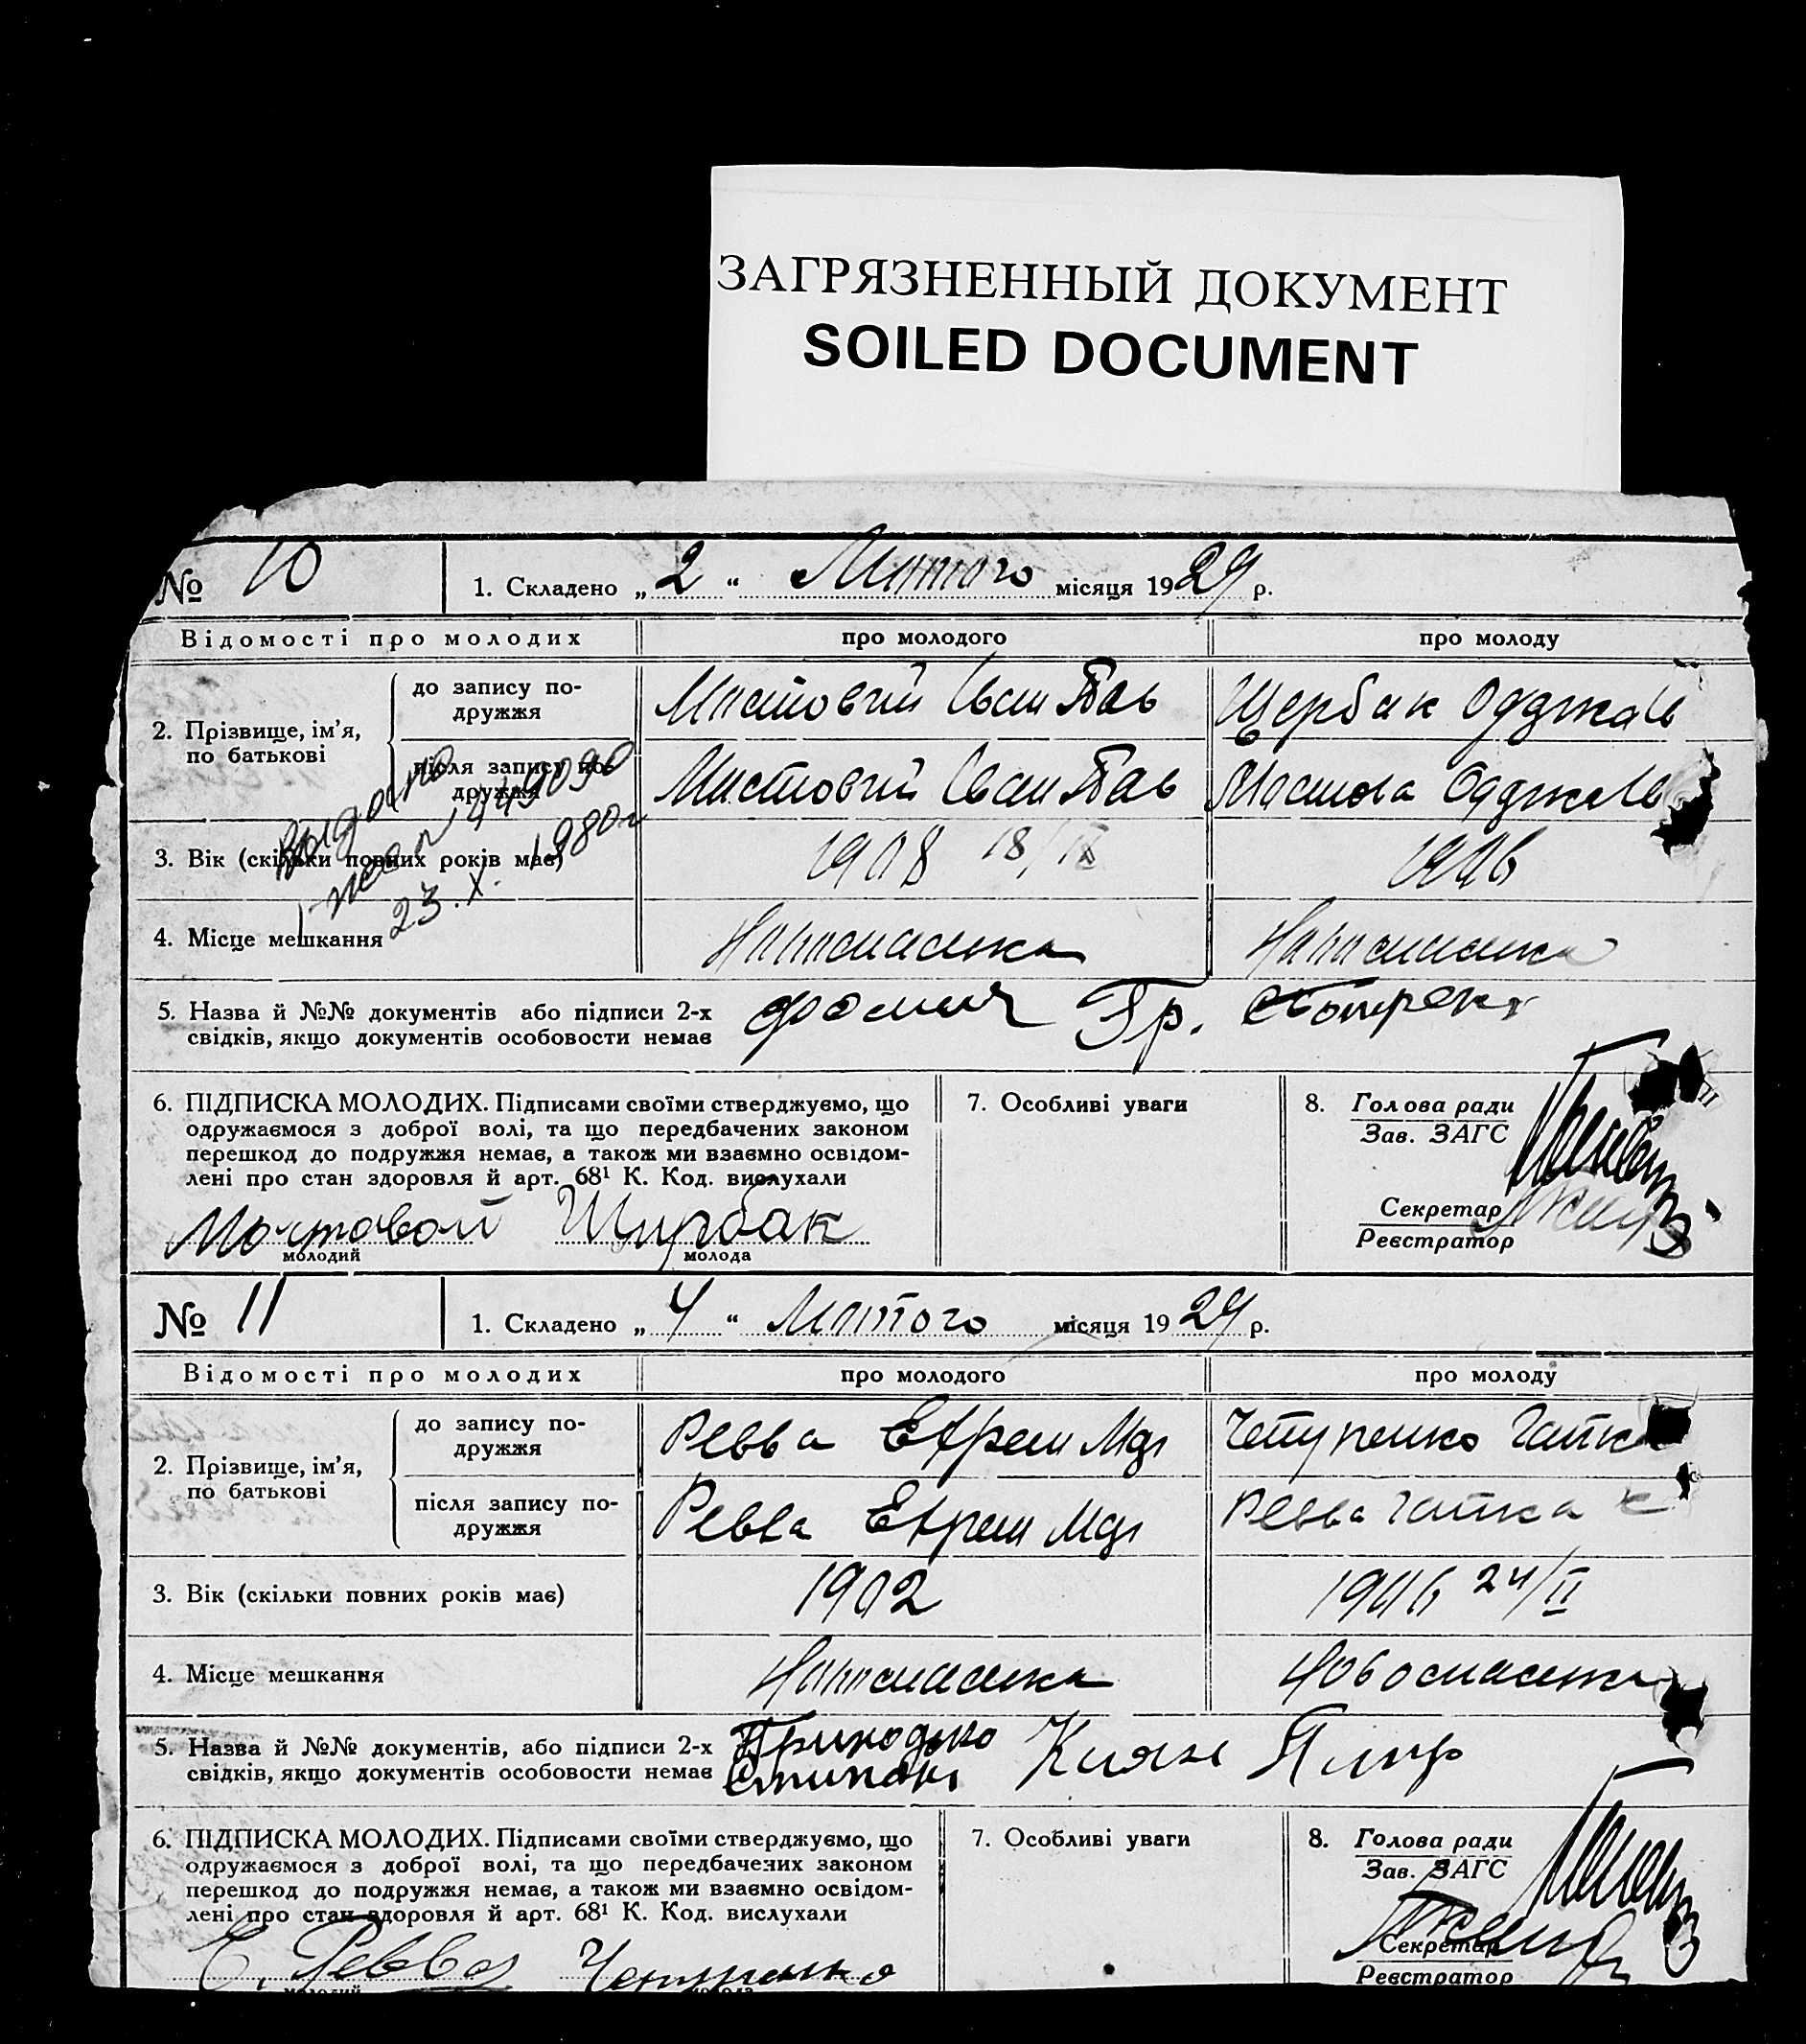 ЗАГРЯЗНЕННЫЙ ДОКУМЕНТ
SOILED DOCUMENT
№ 10
1. Складено „ 2 “ Лютого місяця 1929 р.
Відомості про молодих
про молодого
про молоду
2. Прізвище, ім'я,
по батькові
до запису по-
дружжя
Іван Пав
Щербак
після запису по-
дружжя
Іван Пав
Видано
449090
23.X. 1980г
3. Вік (скільки повних років має)
1908 18/IX
4. Місце мешкання
Новоспаська
Новоспаська
5. Назва й №№ документів або підписи 2-х
свідків, якщо документів особовости немає
Гр.
6. ПІДПИСКА МОЛОДИХ. Підписами своїми стверджуємо, що
одружаємося з доброї волі, та що передбачених законом
перешкод до подружжя немає, а також ми взаємно освідом-
лені про стан здоровля й арт. 68¹ К. Код. вислухали
Мостовой
молодий
молода
7. Особливі уваги
8. Голова ради
Зав. ЗАГС
Секретар
Реєстратор
№ 11
1. Складено „ 4 “ Лютого місяця 1929 р.
Відомості про молодих
про молодого
про молоду
2. Прізвище, ім'я,
по батькові
до запису по-
дружжя
Ревва Ефрем
Гапка
після запису по-
дружжя
Ревва Ефрем
Ревва Гапка
3. Вік (скільки повних років має)
1902
1906 24/II
4. Місце мешкання
Новоспаська
Новоспаська
5. Назва й №№ документів, або підписи 2-х
свідків, якщо документів особовости немає
Приходько
Киян
6. ПІДПИСКА МОЛОДИХ. Підписами своїми стверджуємо, що
одружаємося з доброї волі, та що передбачених законом
перешкод до подружжя немає, а також ми взаємно освідом-
лені про стан здоровля й арт. 68¹ К. Код. вислухали
Е. Ревва
7. Особливі уваги
8. Голова ради
Зав. ЗАГС
Секретар
Реєстратор